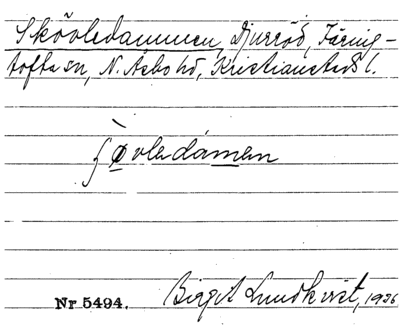 Skövledammen, Djurröd, Färing-
tofta sn, N. Åsbo hd, Kristianstads l.
ʃø̀vledámen
Nr 5494. Birgit Lundkvist, 1936